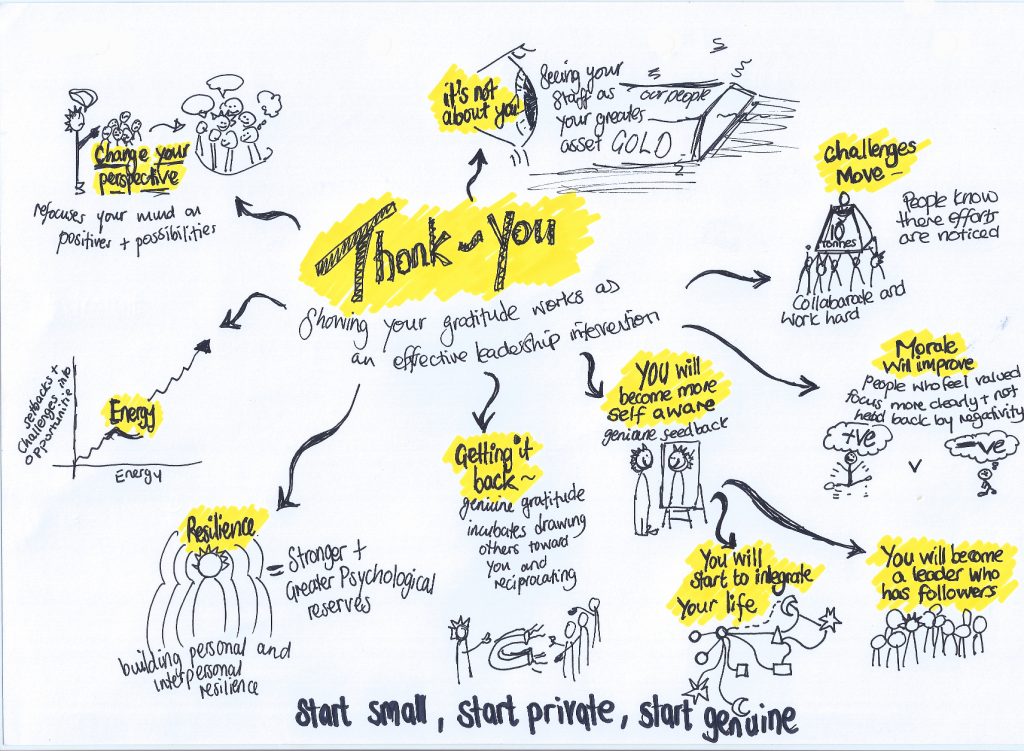 it's not
about you!
Seeing your
staff as
your greates
asset GOLD
our people
Change your
perspective
refocuses your mind on
positives + possibilities
Challenges
Move -
10
Tonnes
People know
there efforts
are noticed
Collabarate and
work hard
Thank-You
Showing your gratitude works as
an effective leadership intervention
Energy
setbacks +
Challenges into
opportunities
Energy
Morale
Will improve
People who feel valued
focus more clearly + not
held back by negativity
+ve
v
-ve
YOU will
become more
self aware
geniune seedback
Getting it
back ~
geniune gratitude
incubates drawing
others toward
you and
reciprocating
Resilience
= Stronger +
Greater Psychological
reserves
building personal and
interpersonal
resilience
You will
start to integrate
Your life
You will become
a leader who
has followers
Start small, start private, start genuine